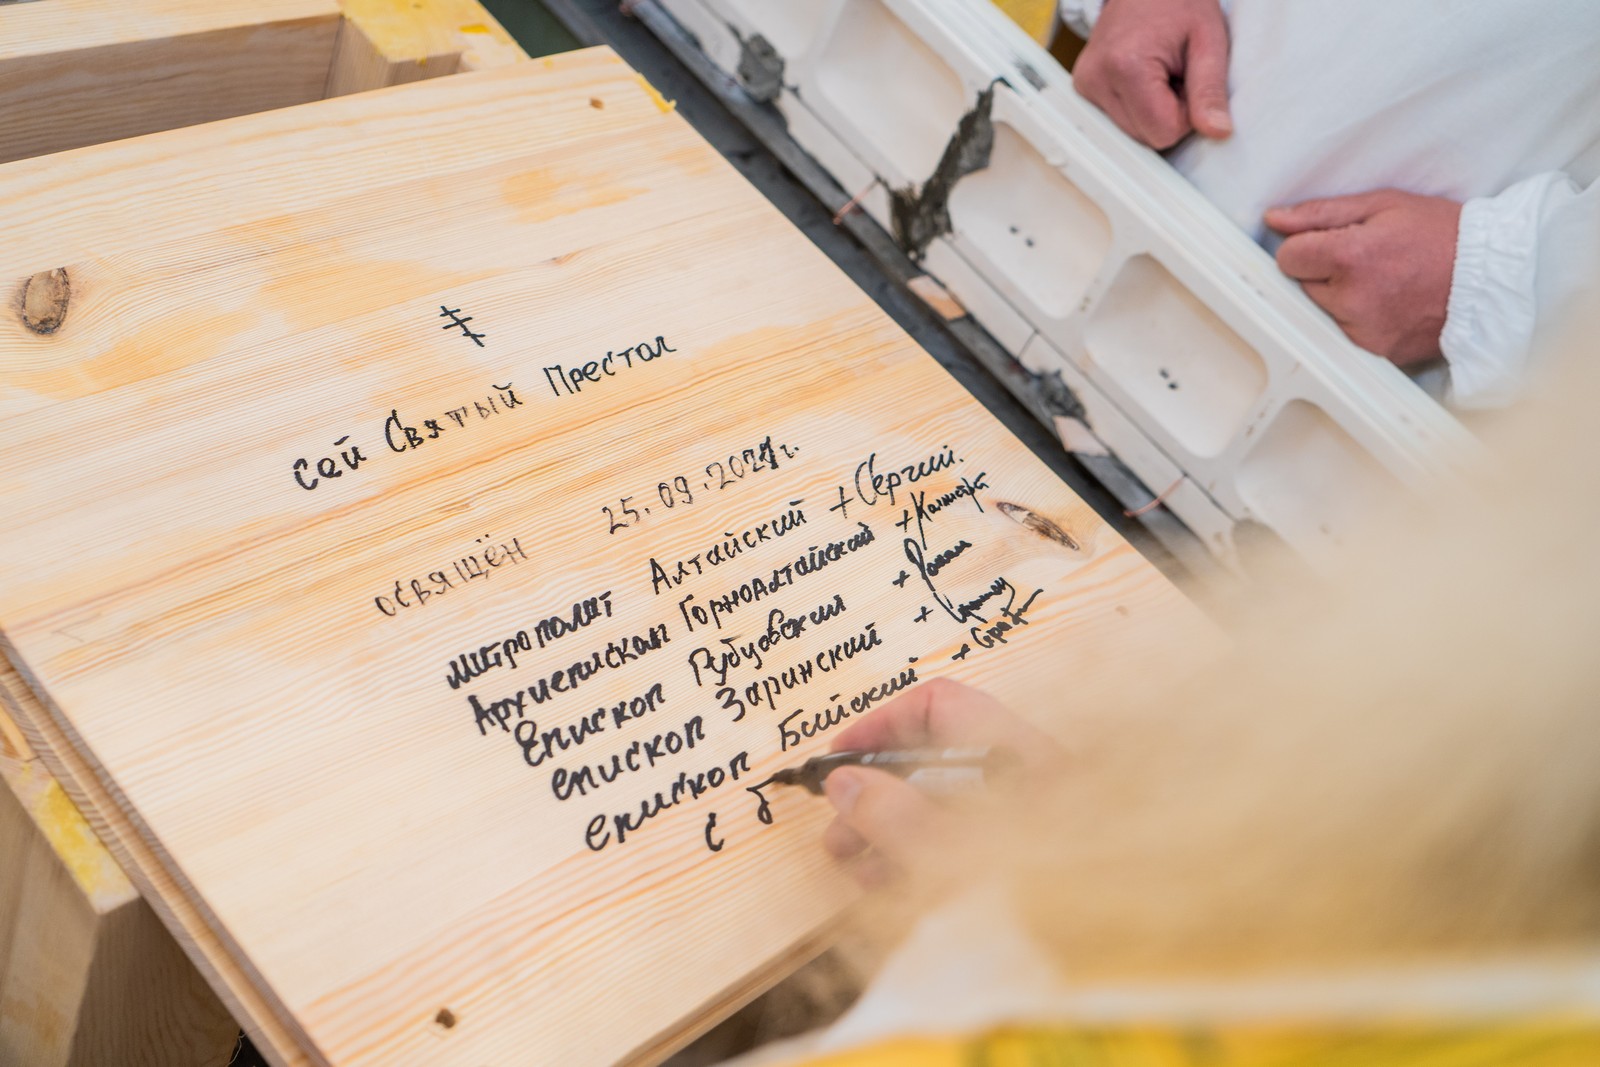 сей Святый Престол
освящён 25.09.2021г.
митрополит Алтайский + Сергий.
Архиепископ Горноалтайский + Каллистрат
Епископ Рубцовский + Роман
епископ Заринский +
епископ Бийский + Серафим
с